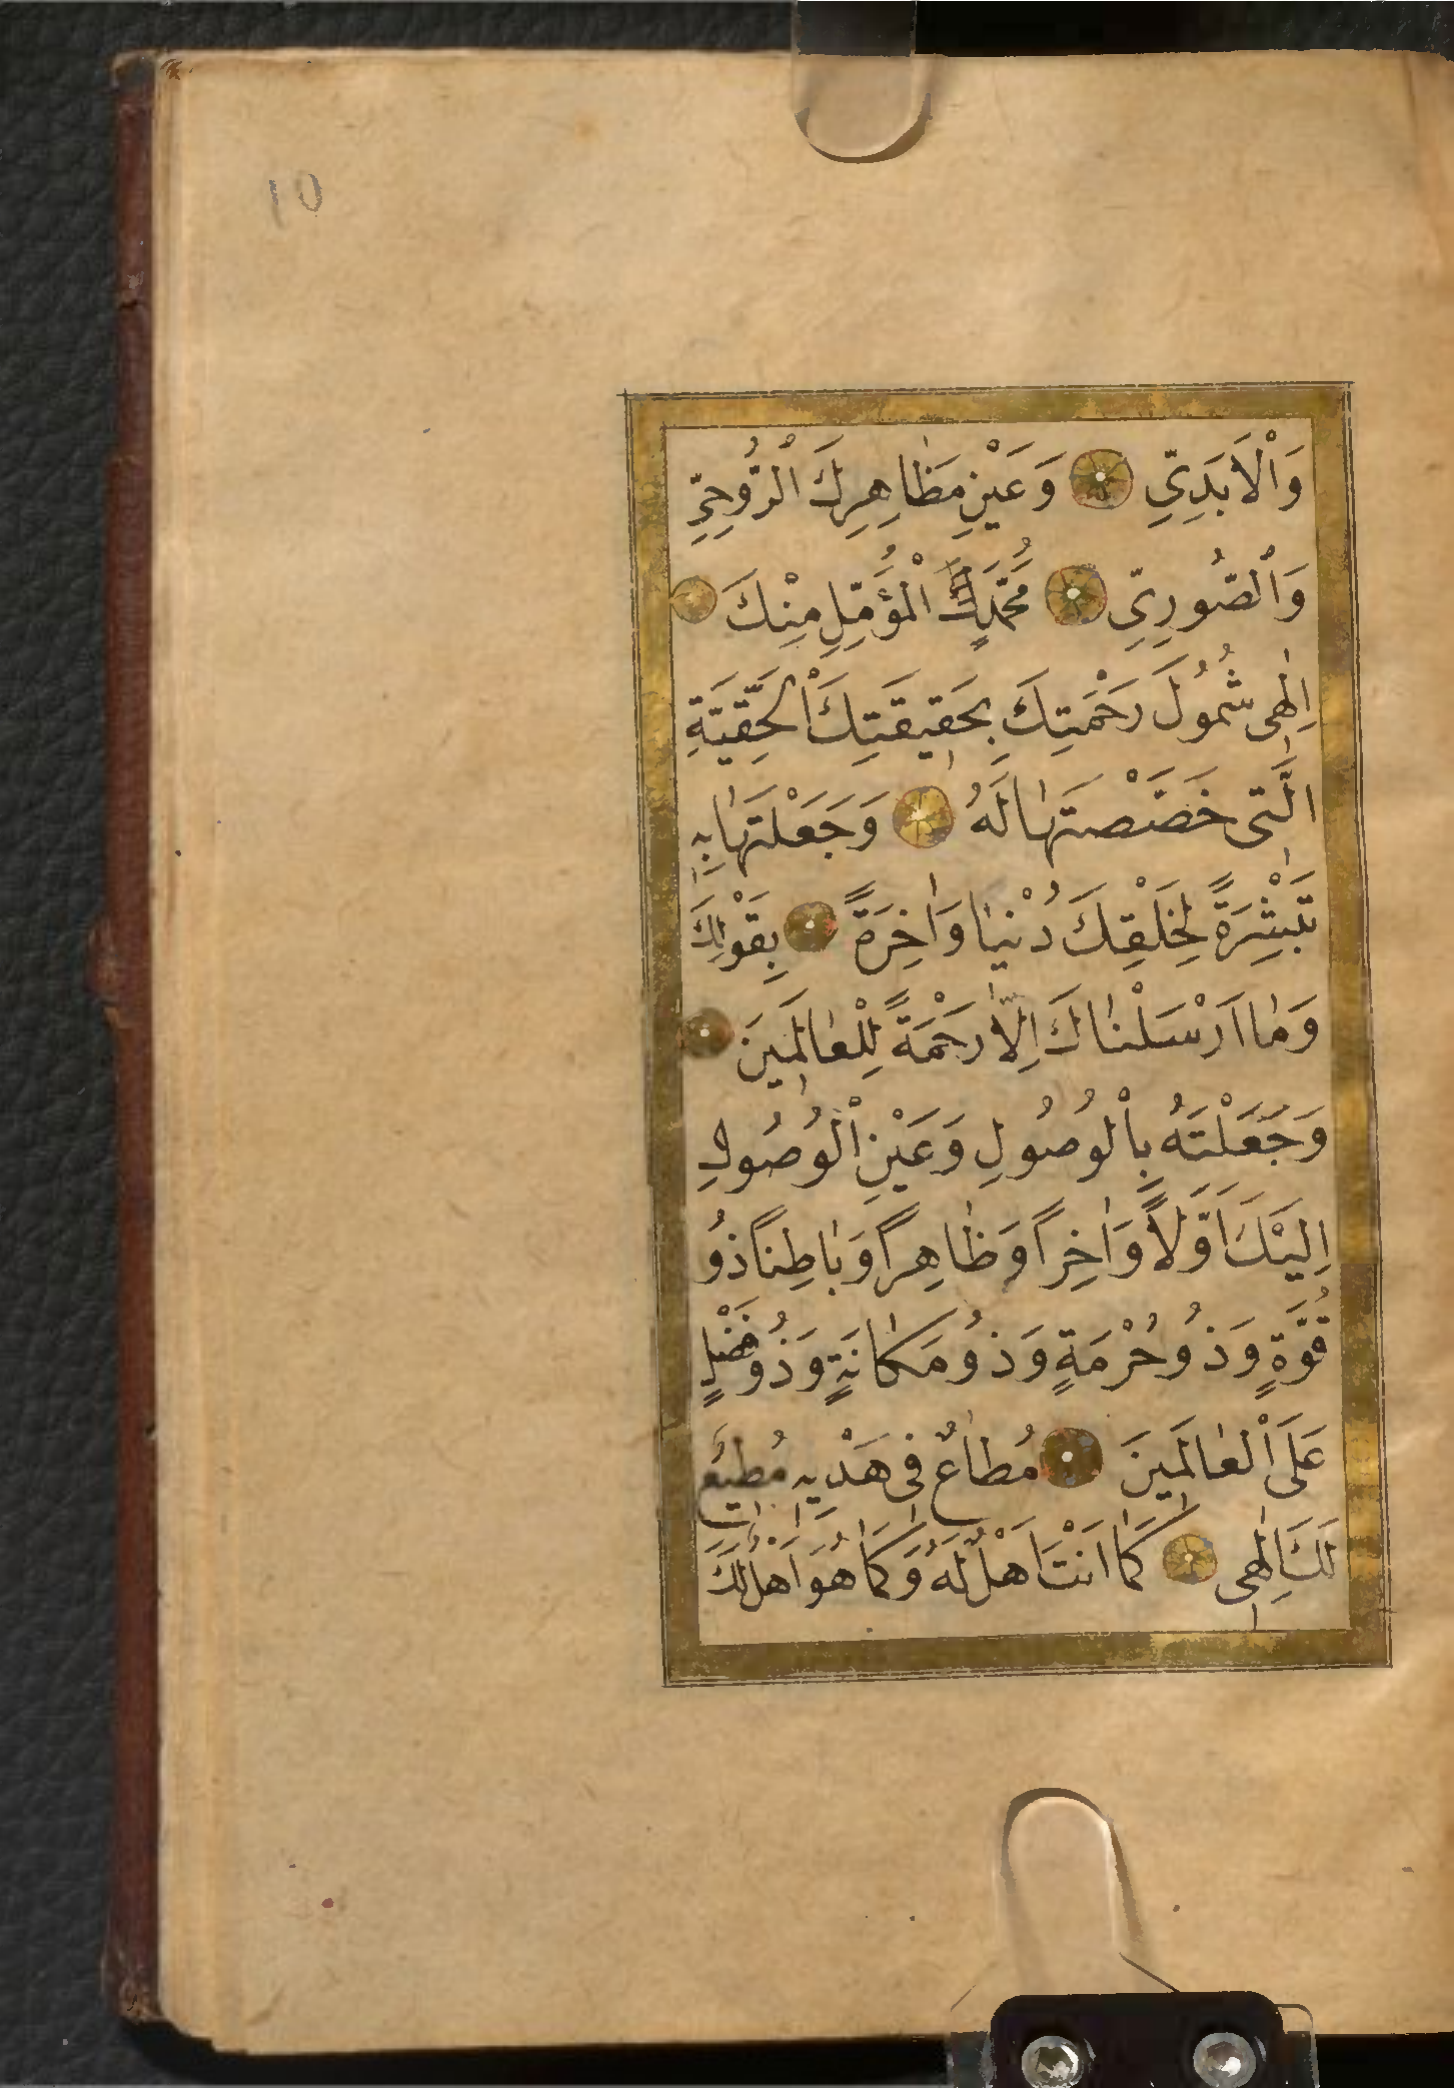 10
وَالْاَبَدِىِّ وَعَيْنِ مَظَاهِرِكَ الْرُّوحِىِّ
وَالْصُّورِىِّ مُحَمَّدِكَ الْمُؤَمَّلِ مِنْكَ
اِلٰهِى شُمُولَ رَحْمَتِكَ بِحَقِيقَتِكَ الْحَقِّيَّةِ
الَّتِى خَصَصْتَهَا لَهُ وَجَعَلْتَهَا بِهِ
تَبْشِرَةً لِخَلْقِكَ دُنْيَا وَاٰخِرَةً بِقَوْلِكَ
وَمَا اَرْسَلْنَاكَ اِلَّا رَحْمَةً لِلْعَالَمِينَ
وَجَعَلْتَهُ بِالْوُصُولِ وَعَيْنِ الْوُصُولِ
اِلَيْكَ اَوَّلاً وَاٰخِراً وَظَاهِراً وَبَاطِناً ذُو
قُوَّةٍ وَذُو حُرْمَةٍ وَذُو مَكَانَةٍ وَذُو فَضْلٍ
عَلَى الْعَالَمِينَ مُطَاعٌ فِى هَدْيِهِ مُطِيعٌ
لَكَ اِلٰهِى كَمَا اَنْتَ اَهْلٌ لَهُ وَكَمَا هُوَ اَهْلٌ لَكَ